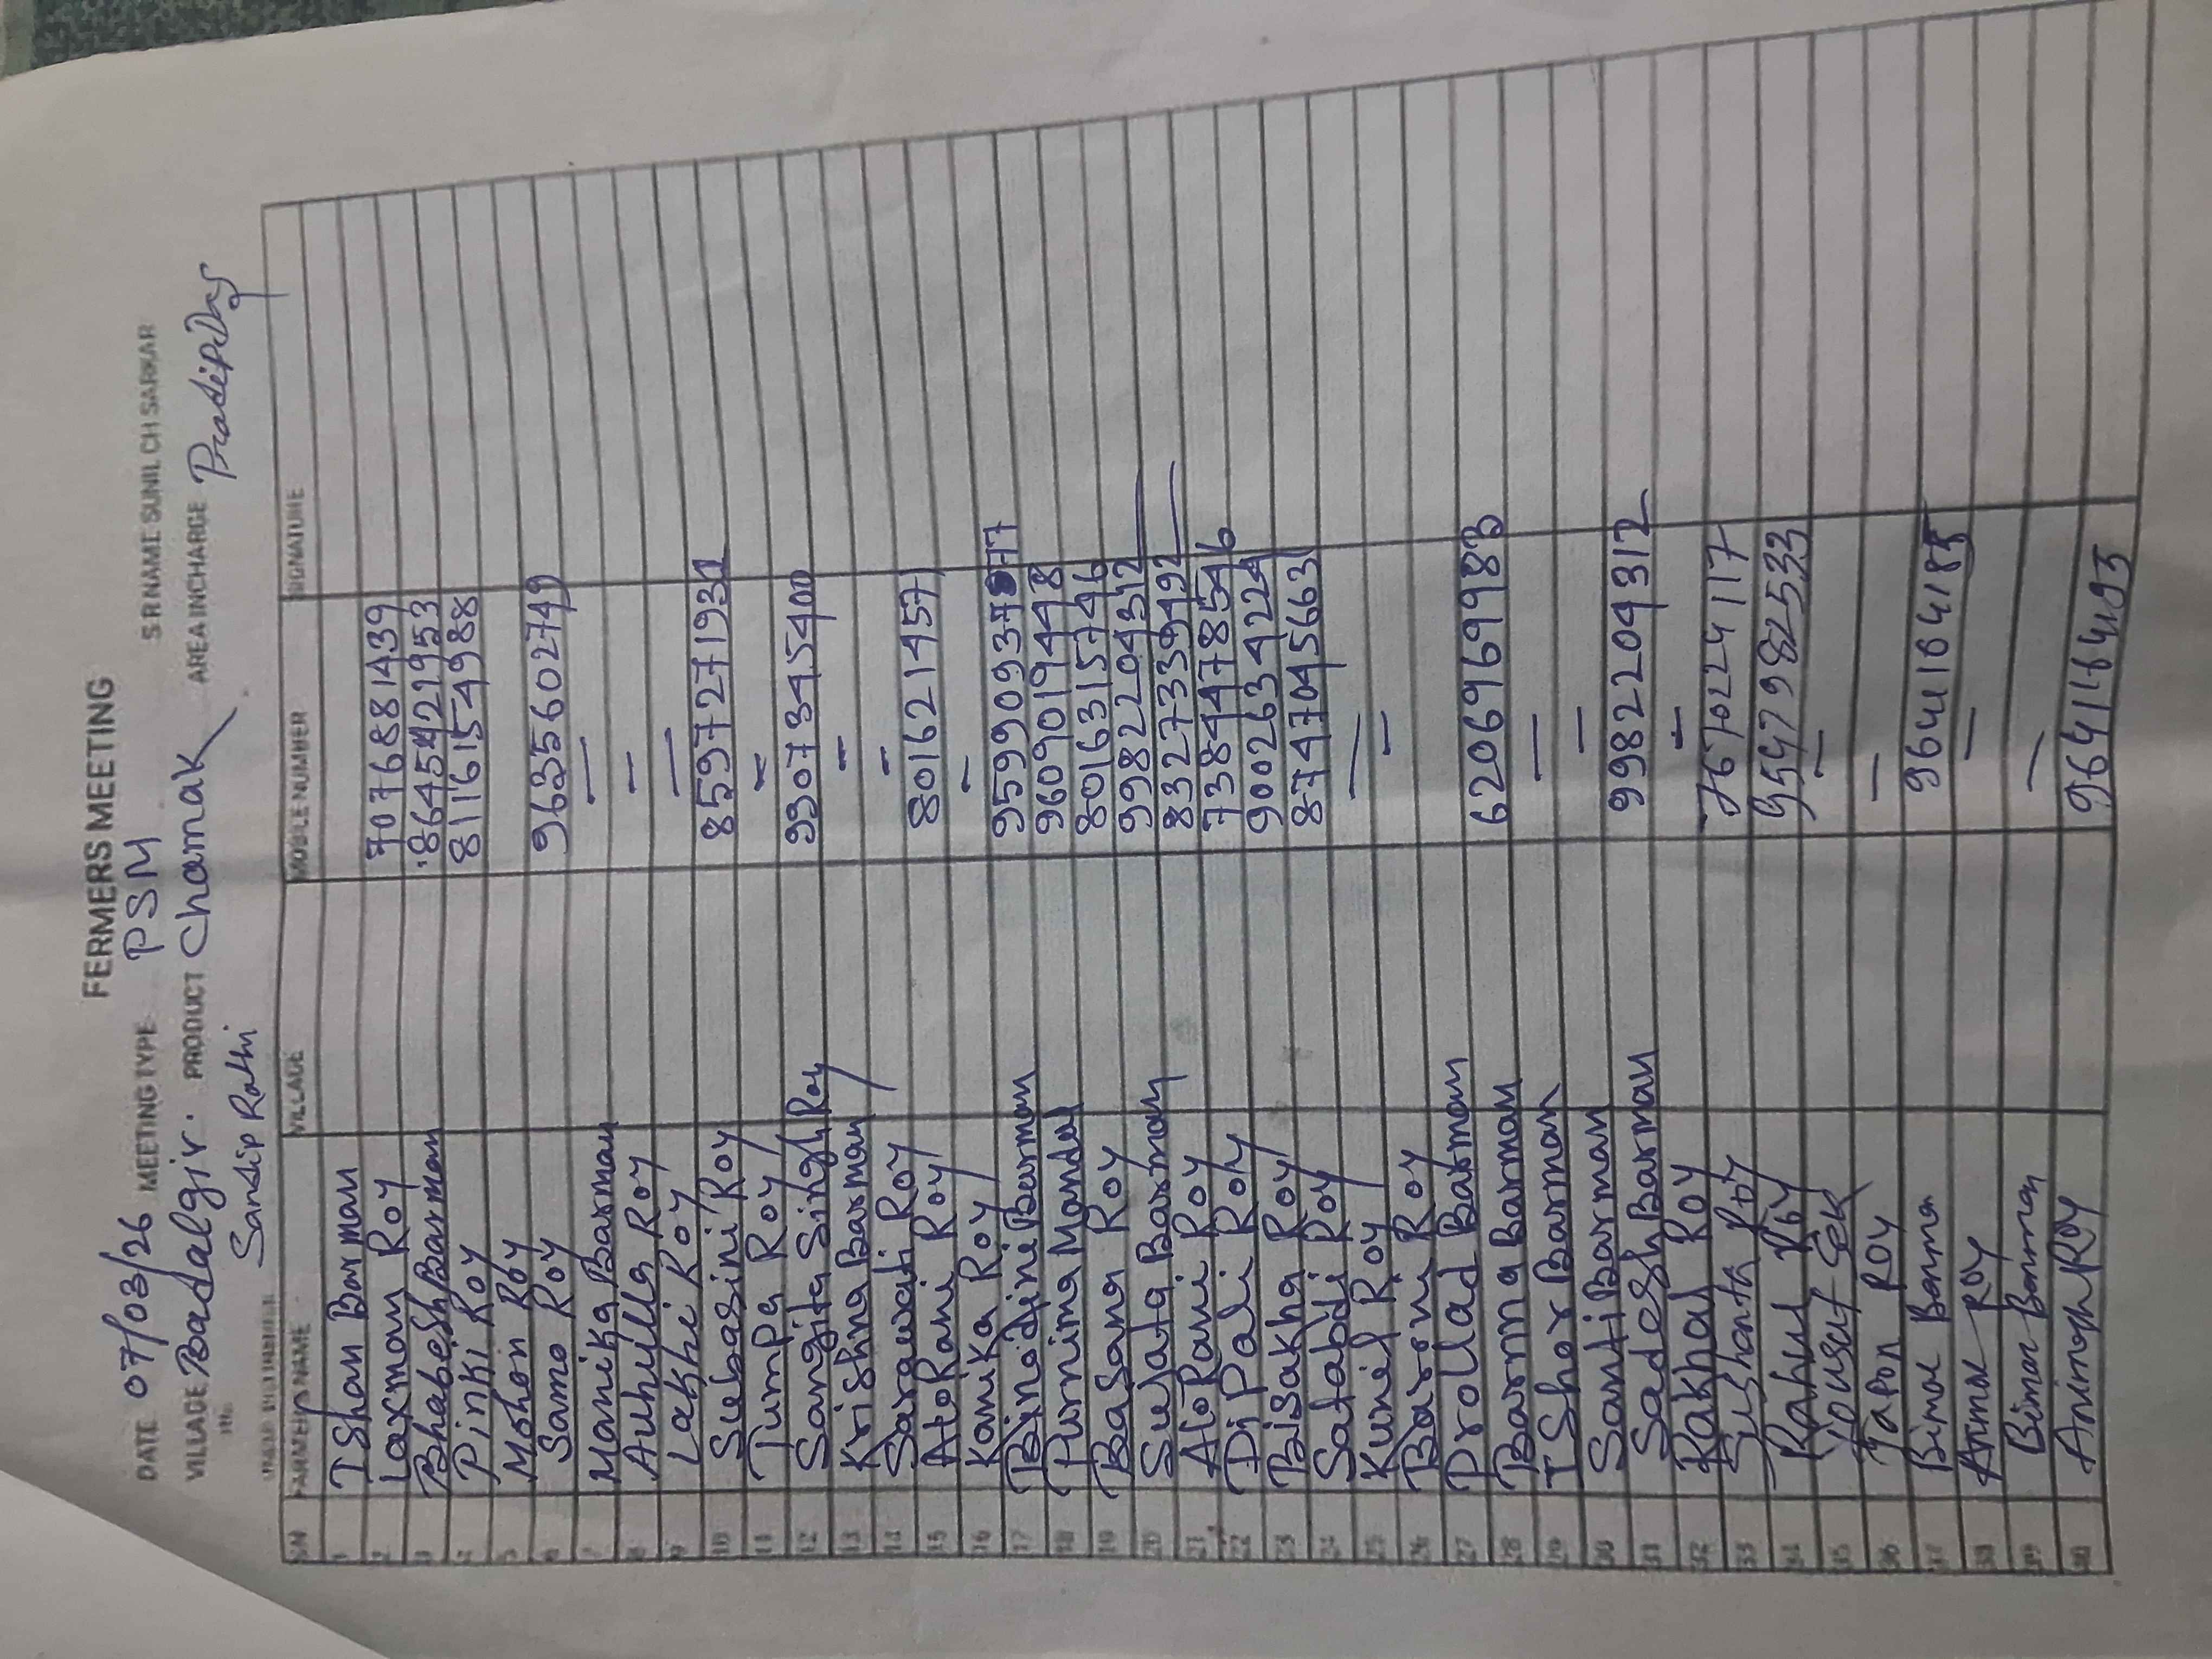 FERMERS MEETING
DATE 07/03/26 MEETING TYPE PSM S R NAME SUNIL CH SARKAR
VILLAGE Badalgir. PRODUCT Chamak AREA INCHARGE Pradip Das
Sandip Rathi
SN FARMERS NAME VILLAGE MOBILE NUMBER SIGNATURE
1 Ishan Barman
2 Laxman Roy 7076881439
3 Bhabesh Barman
4 Pinki Roy 8116154988
5 Mohon Roy
6 Samo Roy 9635602749
7 Manika Barman —
8 Roy —
9 Lakhi Roy —
10 Subasini Roy 8597271931
11 Tumpa Roy -
12 Sangita Singh Roy 9907345400
13 Krishna Barman -
14 Saraswati Roy -
15 Alo Rani Roy 801621457
16 Kanika Roy -
17 Binodini Barman
18 Purnima Mondal 9609019448
19 Basana Roy 8016315746
20 Sulata Barman 9982204312
21 Alo Rani Roy 8327339492
22 DiPali Roy 7384478546
23 Bisakha Roy 9002634224
24 Satabdi Roy 8747045663
25 Kunil Roy —
26 Baroni Roy -
27 Prollad Barman 6206969983
28 Barma Barman —
29 IShor Barman -
30 Santi Barman 9982204312
31 Sadesh Barman -
32 Rakhal Roy 7670224117
33 Sushanta Roy 9547982533
34 Rahul Roy -
35 Sek
36 Tapon Roy -
37 Bimal Barman 9641164185
38 Amal Roy -
39 Bimal Barman -
40 Animesh Roy 9641164193